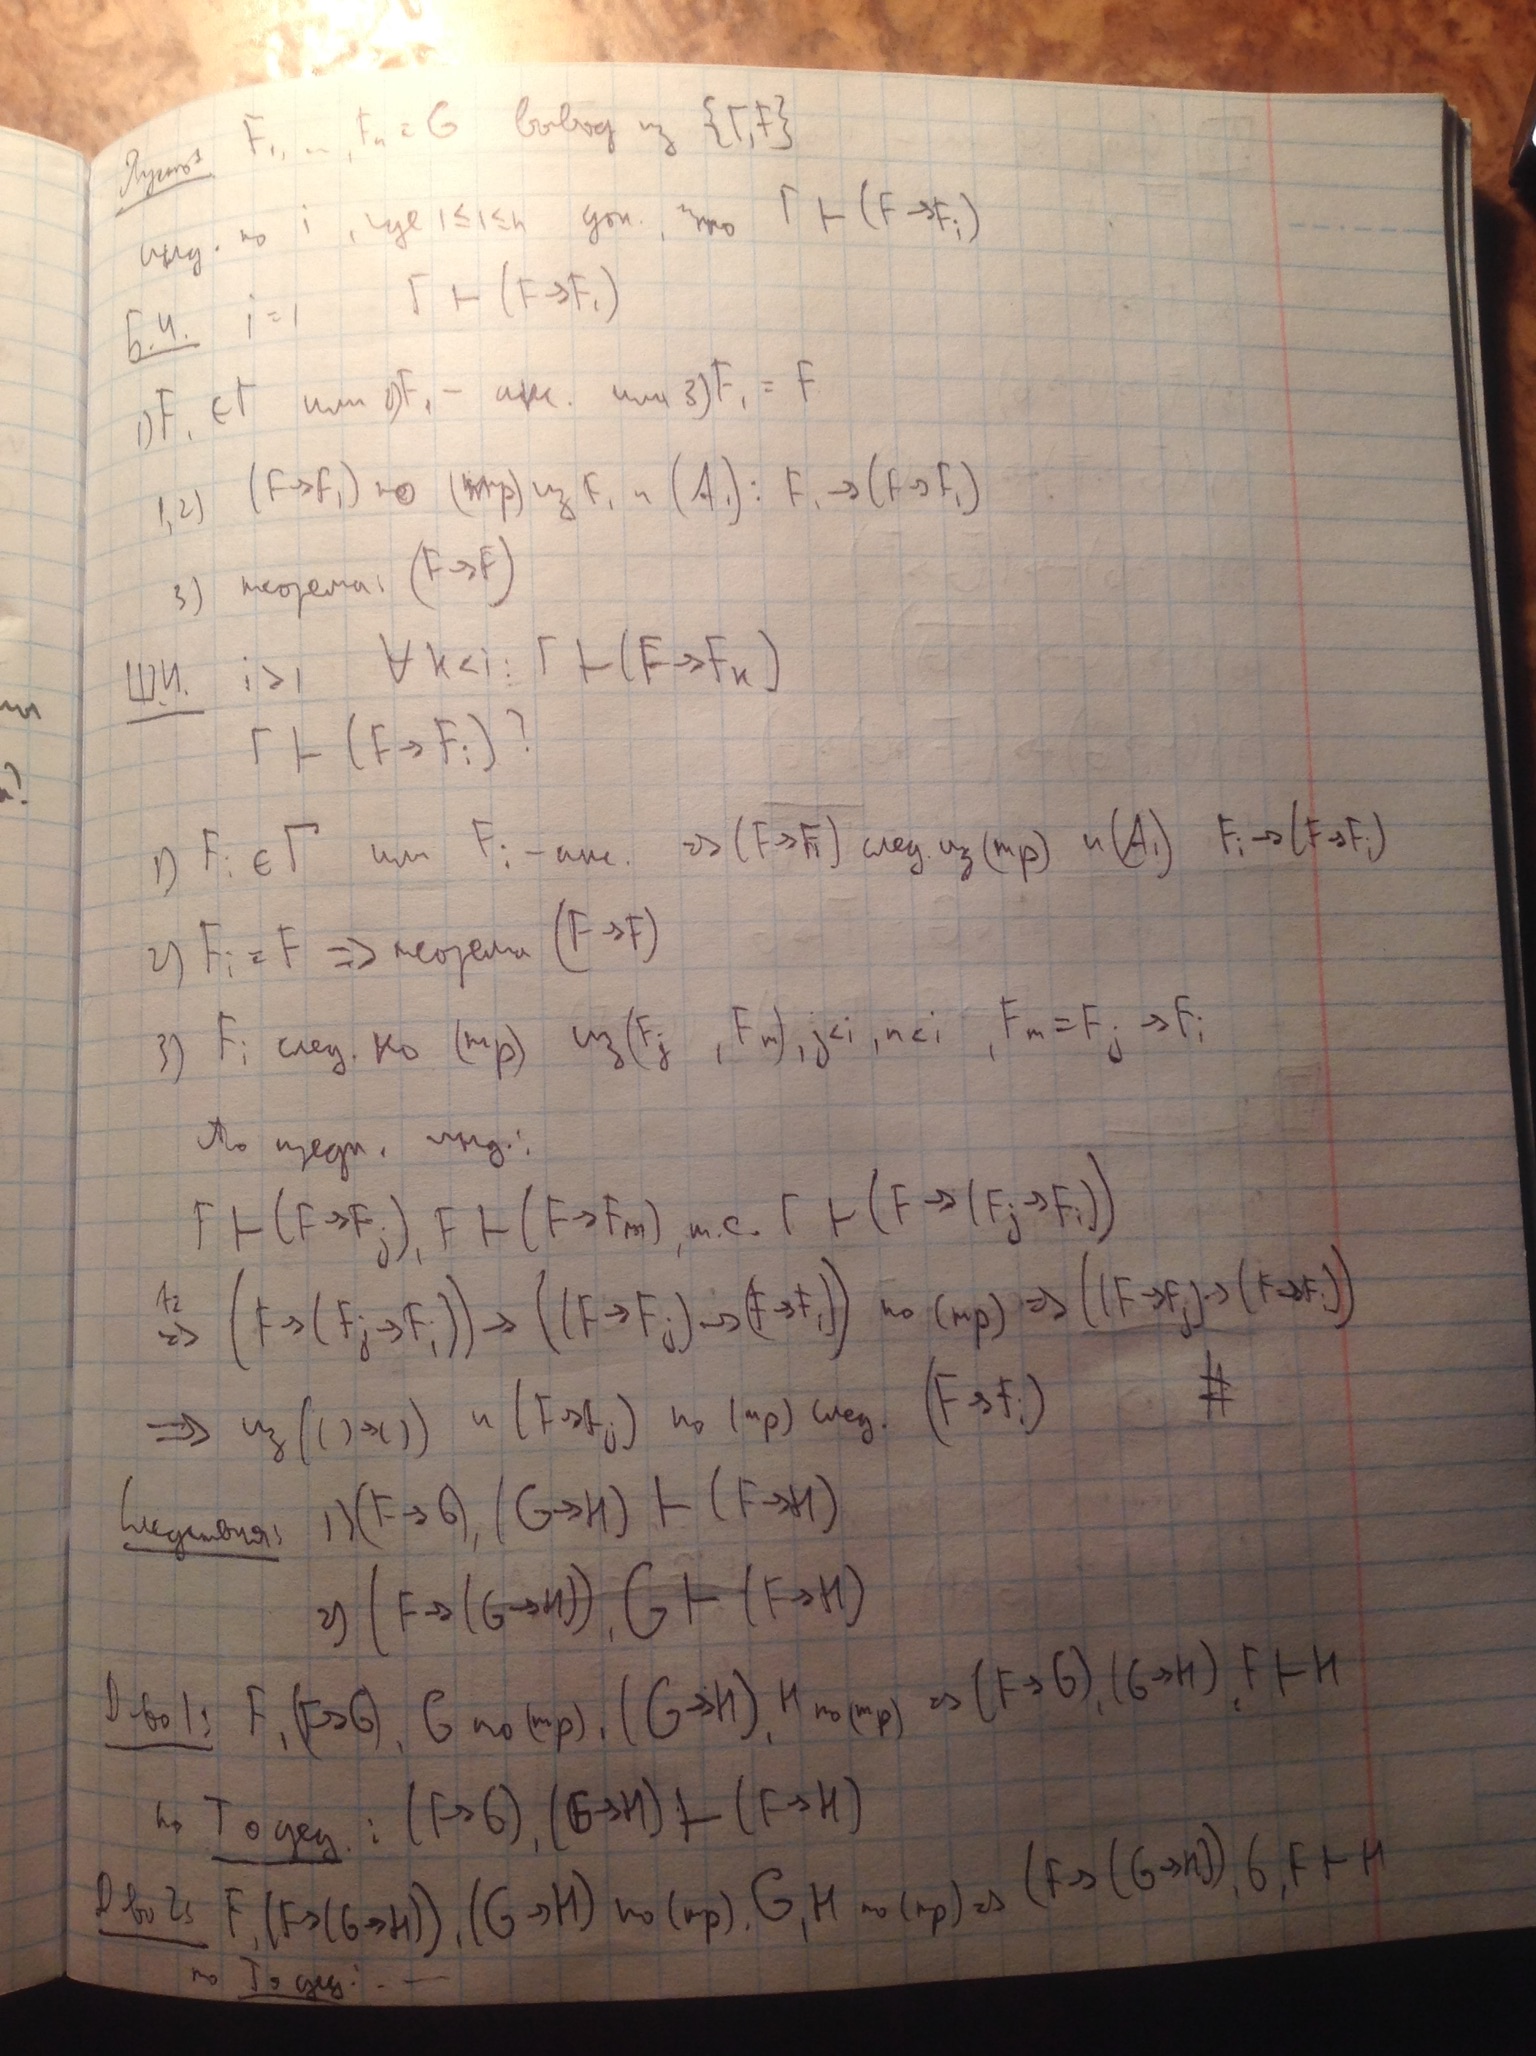 Пусть F₁, ..., Fₙ = G вывод из {Γ,F}
инд. по i, где 1≤i≤n док., что Γ ⊢ (F→Fᵢ)
Б.И. i=1 Γ ⊢ (F→F₁)
1) F₁ ∈ Γ или 2) F₁ – акс. или 3) F₁ = F
1,2) (F→F₁) по (mp) из F₁ и (A₁): F₁→(F→F₁)
3) теорема: (F→F)
Ш.И. i>1 ∀k<i: Γ ⊢ (F→Fₖ)
Γ ⊢ (F→Fᵢ)?
1) Fᵢ ∈ Γ или Fᵢ – акс. ⇒ (F→Fᵢ) след. из (mp) и (A₁) Fᵢ→(F→Fᵢ)
2) Fᵢ = F ⇒ теорема (F→F)
3) Fᵢ след. по (mp) из (Fⱼ, Fₘ), j<i, n<i, Fₘ = Fⱼ→Fᵢ
По предп. инд.:
Γ ⊢ (F→Fⱼ), Γ ⊢ (F→Fₘ), т.е. Γ ⊢ (F→(Fⱼ→Fᵢ))
A₂ ⇒ (F→(Fⱼ→Fᵢ))→((F→Fⱼ)→(F→Fᵢ)) по (mp) ⇒ ((F→Fⱼ)→(F→Fᵢ))
⇒ из (()→()) и (F→Fⱼ) по (mp) след. (F→Fᵢ) #
Следствия: 1) (F→G), (G→H) ⊢ (F→H)
2) (F→(G→H)), G ⊢ (F→H)
D-во 1: F, (F→G), G по (mp), (G→H), H по (mp) ⇒ (F→G), (G→H), F ⊢ H
по Т о дед.: (F→G), (G→H) ⊢ (F→H)
D-во 2: F, (F→(G→H)), (G→H) по (mp), G, H по (mp) ⇒ (F→(G→H)), G, F ⊢ H
по Т о дед: . —